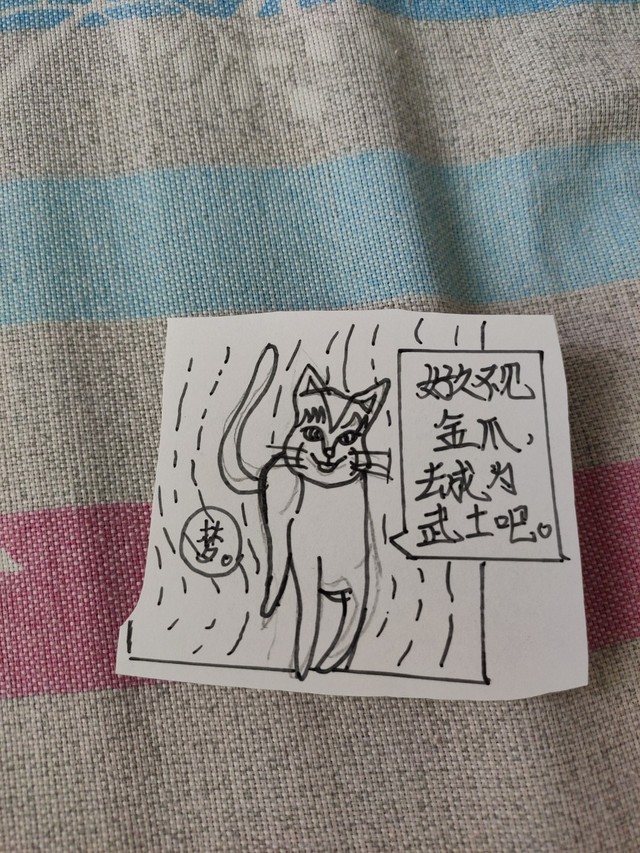 好久不见
金爪，
去成为
武士吧。
梦。